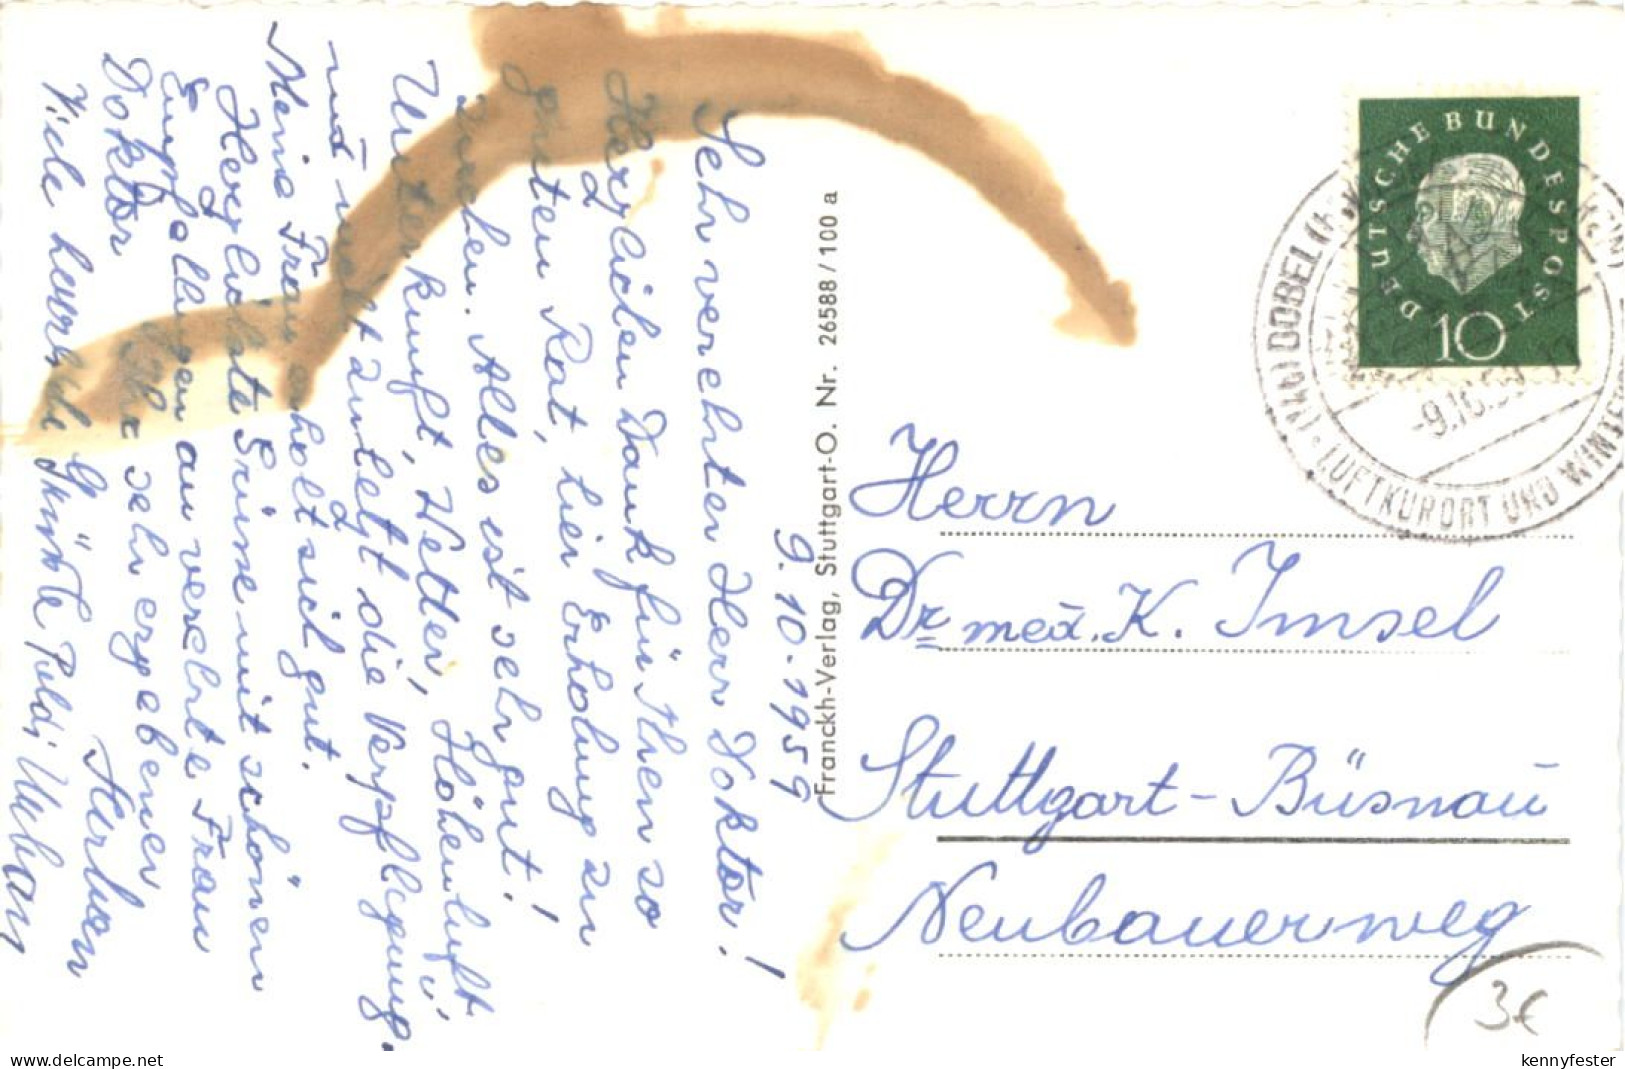 9. 10. 1959
Sehr verehrter Herr Doktor!
Herzlichen Dank für Ihren so
guten Rat, hier Erholung zu
suchen. Alles ist sehr gut!
Unterkunft, Wetter, Höhenluft
und nicht zuletzt die Verpflegung.
Meine Frau erholt sich gut.
Herzlichste Grüsse mit schönen
Empfehlungen an verehrte Frau
Doktor
Ihr sehr ergebener
Viele herzliche Grüße Poldi Urban
Franckh-Verlag, Stuttgart-O. Nr. 26588/100 a
DEUTSCHE BUNDESPOST
10
DOBEL
-9.10.59
LUFTKURORT UND
Herrn
Dr. med. K. Imsel
Stuttgart-Büsnau
Neubauerweg
3€
www.delcampe.net
kennyfester